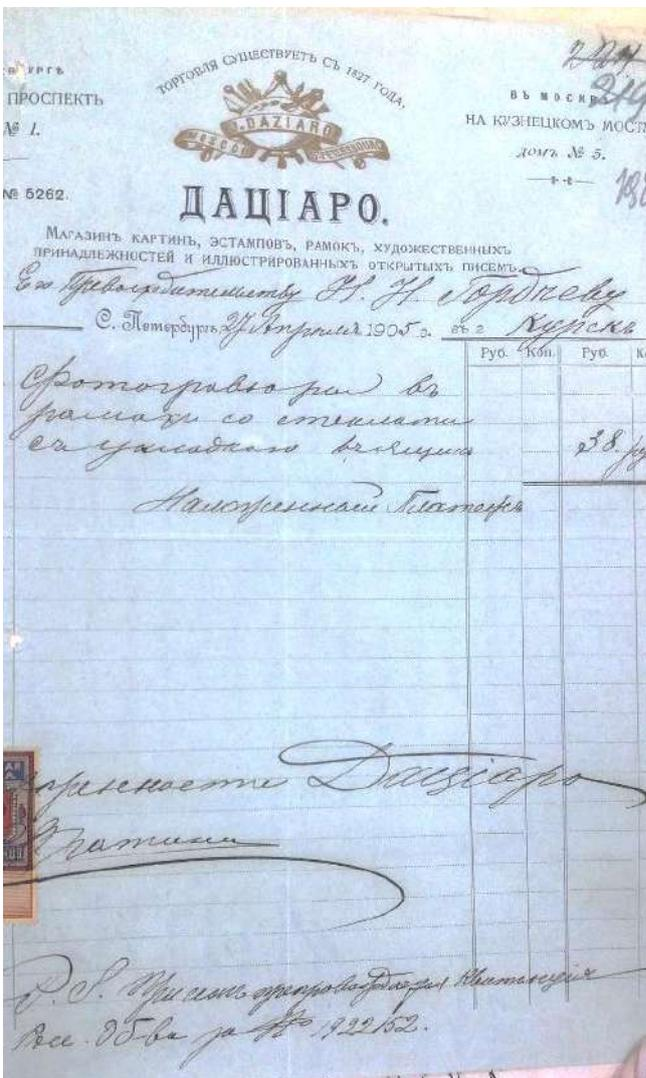 ТОРГОВЛЯ СУЩЕСТВУЕТЪ СЪ 1827 ГОДА.
ПРОСПЕКТЪ
№ 1.
№ 5262.
J. DAZIARO
MOSCOU
ST PETERSBOURG
ВЪ МОСКВ
НА КУЗНЕЦКОМЪ МОСТ
ДОМЪ № 5.
ДАЦІАРО.
МАГАЗИНЪ КАРТИНЪ, ЭСТАМПОВЪ, РАМОКЪ, ХУДОЖЕСТВЕННЫХЪ
ПРИНАДЛЕЖНОСТЕЙ И ИЛЛЮСТРИРОВАННЫХЪ ОТКРЫТЫХЪ ПИСЕМЪ.
Его Превосходительству Н. Н. Гордѣеву
С. Петербургъ, 27 Апрѣля 1905 г. въ г Курскъ
Руб. Коп. Руб. К
Фотогравюра въ
рамахъ со стеклами
съ укладкою въ ящик 38. ру
Наложенный Платежъ
Даціаро
P. S. При семъ препровождается Квитанція
Рос. Об-ва за № 192252.